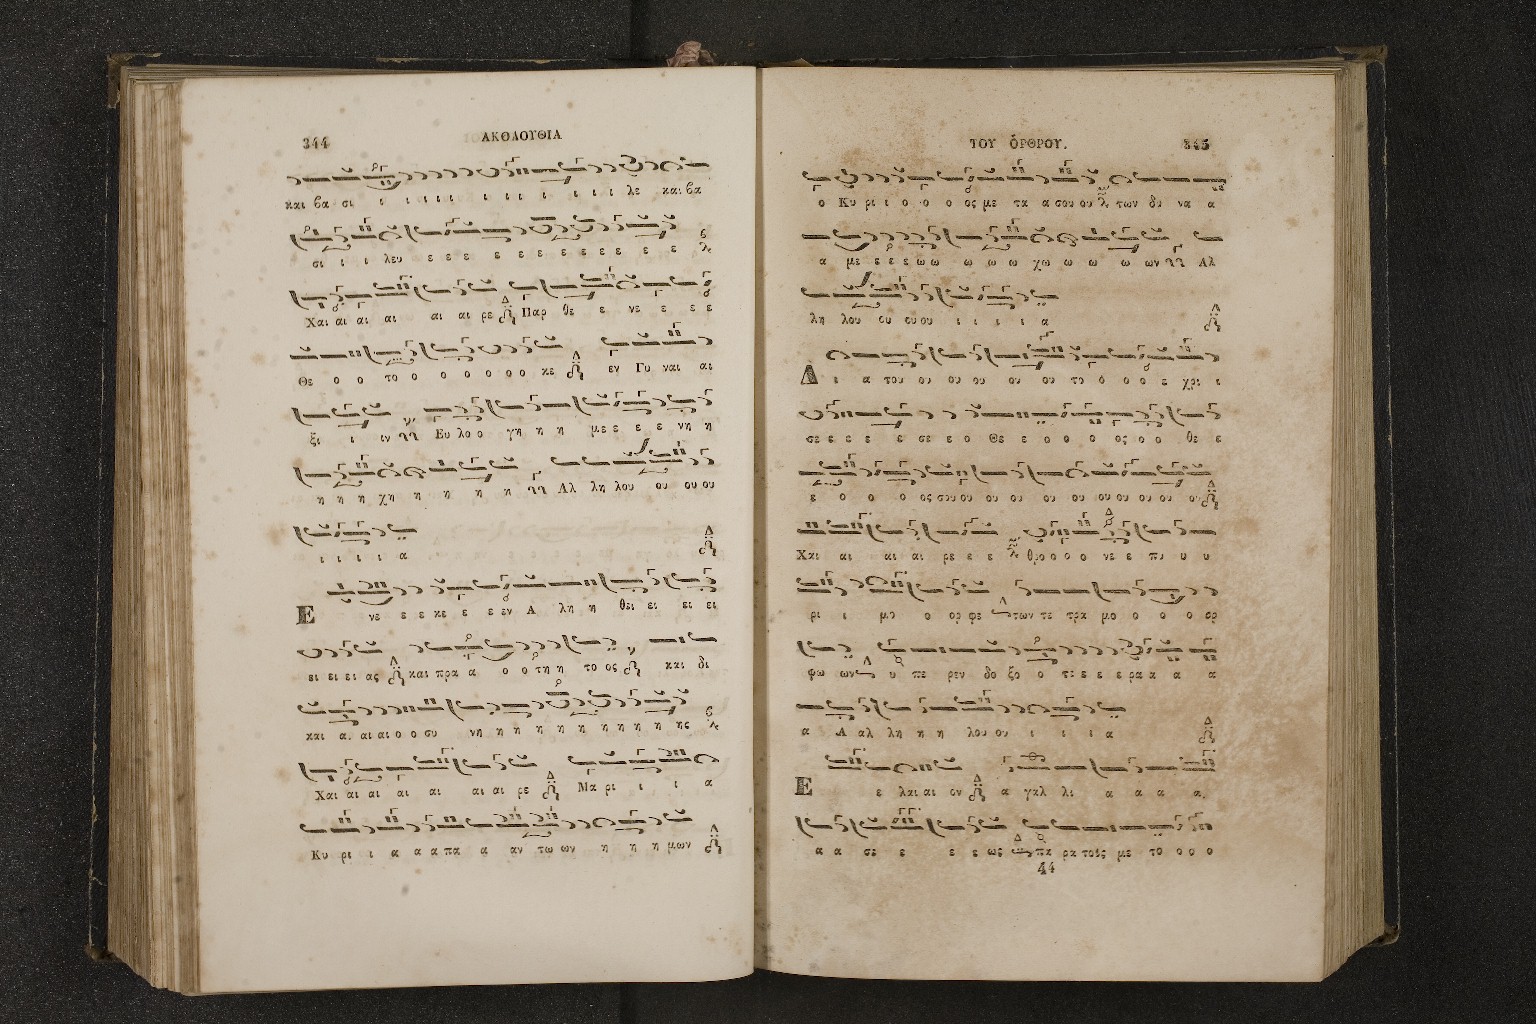 344 ΑΚΟΛΟΥΘΙΑ
και βα σι ι ι ι ι ι ι ι ι ι ι ι ι λε και βα
σι ι ι λευ ε ε ε ε ε ε ε ε ε ε ε ε
Χαι αι αι αι αι αι ρε Παρ θε ε νε ε ε ε
Θε ο ο το ο ο ο ο ο ο κε εν Γυ ναι αι
ξι ι ιν Ευ λο ο γη η η με ε ε ε νη η
η η η χη η η η η Αλ λη λου ου ου ου
ι ι ι ι α
Ε νε ε ε κε ε ε εν Α λη η θει ει ει ει
ει ει ει ας και πρα α ο ο τη η το ος και δι
και α αι αι ο ο συ νη η η η η η η η η η ης
Χαι αι αι αι αι αι αι ρε Μα ρι ι ι α
Κυ ρι ι α α α πα α αν τω ων η η η μων
ΤΟΥ ΌΡΘΡΟΥ. 345
ο Κυ ρι ι ο ο ο ο ος με τα α σου ου των δυ να α
α με ε ε ε ω ω ω ω ω χω ω ω ω ων Αλ
λη λου ου ου ου ι ι ι ι α
Δ ι α του ου ου ου ου ου το ό ο ο ε χρι ι
σε ε ε ε ε σε ε ο Θε ε ο ο ο ος ο ο θε ε
ε ο ο ο ος σου ου ου ου ου ου ου ου ου ου ου
Χαι αι αι αι ρε ε ε θρο ο ο ο νε ε πυ υ υ
ρι ι μο ο ορ φε των τε τρα μο ο ο ο ορ
φω ων υ πε ρεν δο ξο ο τε ε ε ε ρα α α α
α Α αλ λη η η λου ου ι ι ι α
Ε ε λαι αι ον α γαλ λι α α α α
α α σε ε ε ε ως πα ρα τοίς με το ο ο ο
44